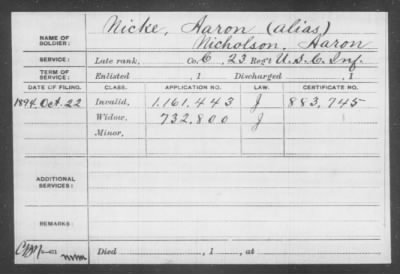 NAME OF SOLDIER: Nicke, Aaron (alias)
Nicholson, Aaron
SERVICE: Late rank, Co. C, 23 Reg't U.S.C. Inf.
TERM OF SERVICE: Enlisted , 1 Discharged , 1
DATE OF FILING. CLASS. APPLICATION NO. LAW. CERTIFICATE NO.
1894. Oct. 22 Invalid, 1.161.443 J 883,745
Widow, 732,800 J
Minor,
ADDITIONAL SERVICES:
REMARKS:
Died , 1 , at